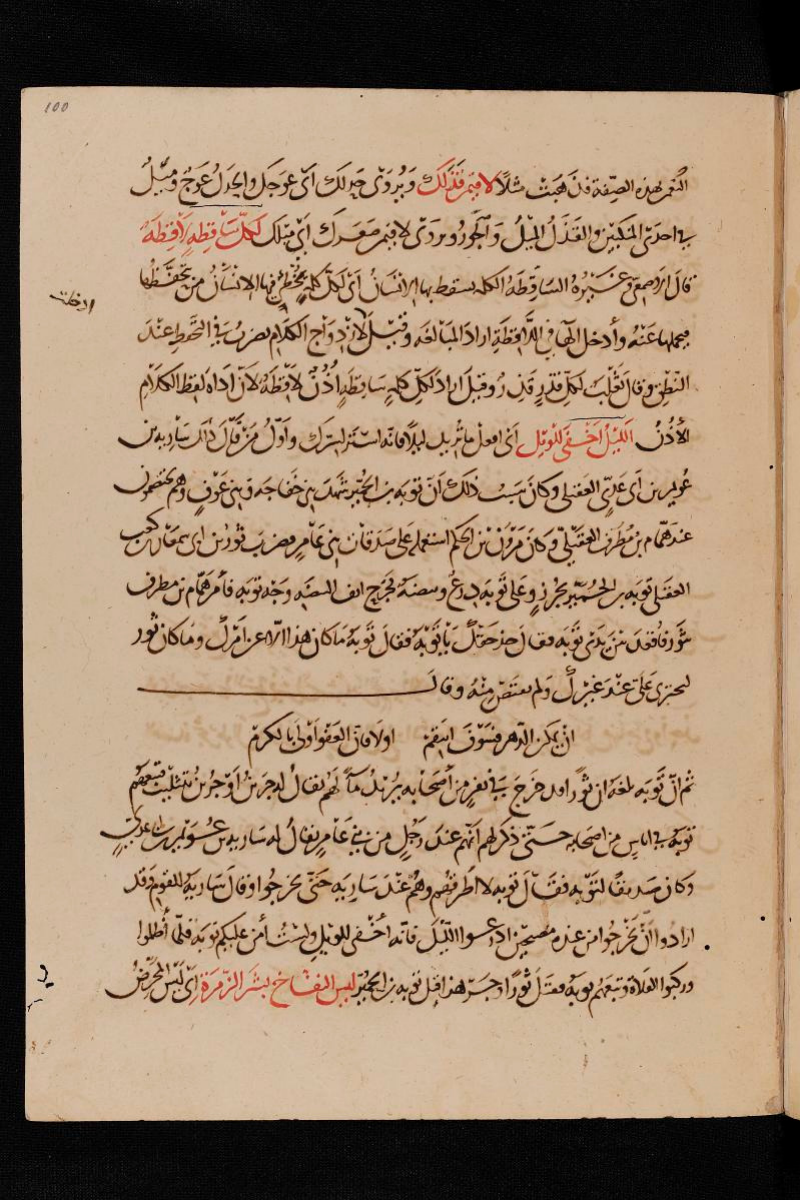 100
النعم بهذه الصفة فذهبت مثلاً لاقيمن قذلك ويروى حدلك اى عوجك والحدل عوج وميل
فى احدى المنكبين والقذل الميل والجور ويروى لاقيمن صعرك اى ميلك لكل ساقطة لاقطة
قال الاصمعى وغيره الساقطة الكلمة يسقط بها الانسان اى لكل كلمة يخطئ فيها الانسان من يتحفظها
فيحملها عنه وأدخل الهاء فى اللاقطة ارادة المبالغة وقيل لازدواج الكلام يضرب فى التحفظ عند
النطق وقال ثعلب لكل قذر فذر وقيل اراد لكل كلمة ساقطة اذن لاقطة لان اداة لقط الكلام
الأذن الليل اخفى للويل اى افعل ما تريد ليلا فانه استر لسرك واول من قال ذلك سارية بن
عويمر بن ابى عدى العقيلى وكان سبب ذلك ان توبة بن الحمير شهد بنى خفاجة وبنى عوف وهم يختصمون
عند همام بن مطرف العقيلى وكان مروان بن الحكم استعمله على صدقات بنى عامر فضرب ثور بن ابى سمعان بن كعب
العقيلى توبة بن الحمير بجرز وعلى توبة درع وبيضة فجرح انف البيضة وجه توبة فأمر همام بن مطرف
بثور فأقعد بين يدى توبة فقال خذ حقك يا توبة فقال توبة ما كان هذا الا عن امرك وما كان ثور
ليجترى على عند غيرك ولم يقتص منه وقال
ان يمكن الدهر فسوف انتقم اولا فان العفو اولى بالكرم
ثم ان توبة بلغه ان ثورا قد خرج فى نفر من أصحابه يريد ماء لهم يقال له جرير أو جرين بتثليث فتبعهم
توبة فى اناس من اصحابه حتى ذكر لهم انهم عند رجل من بنى عامر يقال له سارية بن عويمر بن ابى عدى
وكان صديقا لتوبة فقال توبة لا اطرقهم وهم عند سارية حتى يخرجوا وقال سارية للقوم وقد
ارادوا ان يخرجوا من عنده مصبحين ادرعوا الليل فانه اخفى للويل ولست آمن عليكم توبة فلما أظلوا
وركبوا الفلاة وتبعهم توبة فقتل ثورا وجر هذا قتل توبة بن الحمير لبس النفاخ بشر الزمرة اى لبس المحرض